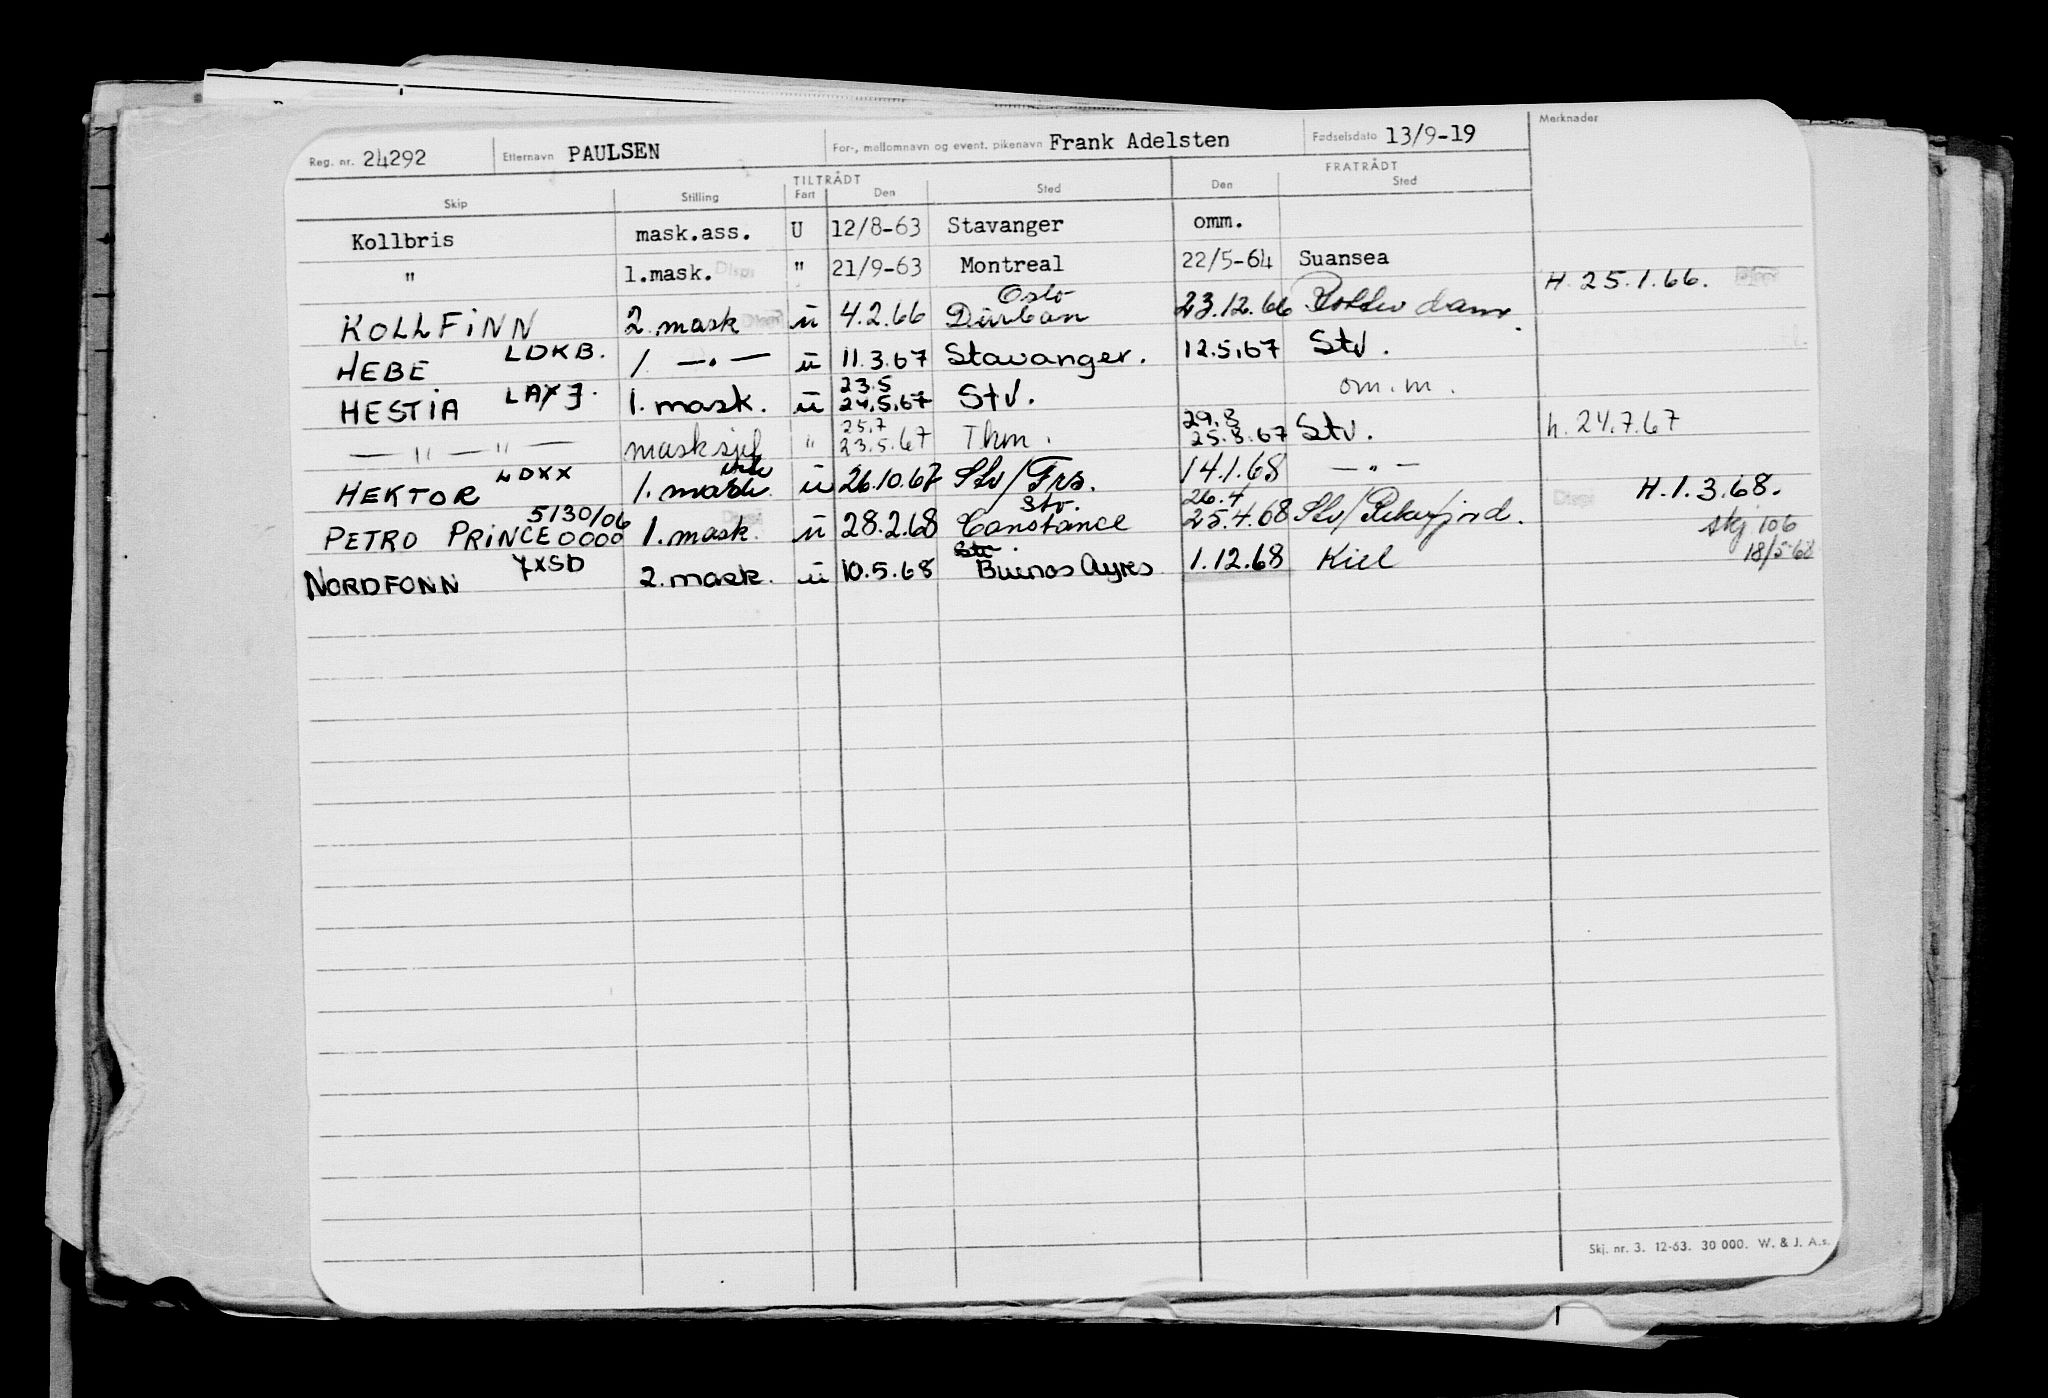 Reg. nr. 24292 Etternavn PAULSEN For-, mellomnavn og event. pikenavn Frank Adelsten Fødselsdato 13/9-19 Merknader
TILTRÅDT FRATRÅDT
Skip Stilling Fart Den Sted Den Sted
Kollbris mask.ass. U 12/8-63 Stavanger omm.
" 1.mask. Disp " 21/9-63 Montreal 22/5-64 Suansea
H. 25.1.66. Disp
Oslo
KOLLFINN 2. mask Disp u 4.2.66 Durban 23.12.66 Rotterdam.
HEBE LDKB. 1. —"— u 11.3.67 Stavanger. 12.5.67 Stv.
23.5
HESTIA LAXJ. 1. mask. u 24.5.67 Stv. om.m.
25.7 29.8
— " — " — mask sjef " 23.5.67 Thm. 25.8.67 Stv. h. 24.7.67
HEKTOR LDXX 1. mask. u 26.10.67 Stv/Frs. 14.1.68 —"—
5130/06 Stv. 26.4 Disp H.1.3.68.
PETRO PRINCE 0000 1. mask. u 28.2.68 Constance 25.4.68 Stv/Rekefjord. skj 106
Stv 18/5-68
NORDFONN 2. mask. u 10.5.68 Buenos Ayres 1.12.68 Kiel
Skj. nr. 3. 12-63. 30 000. W. & J. A.s.